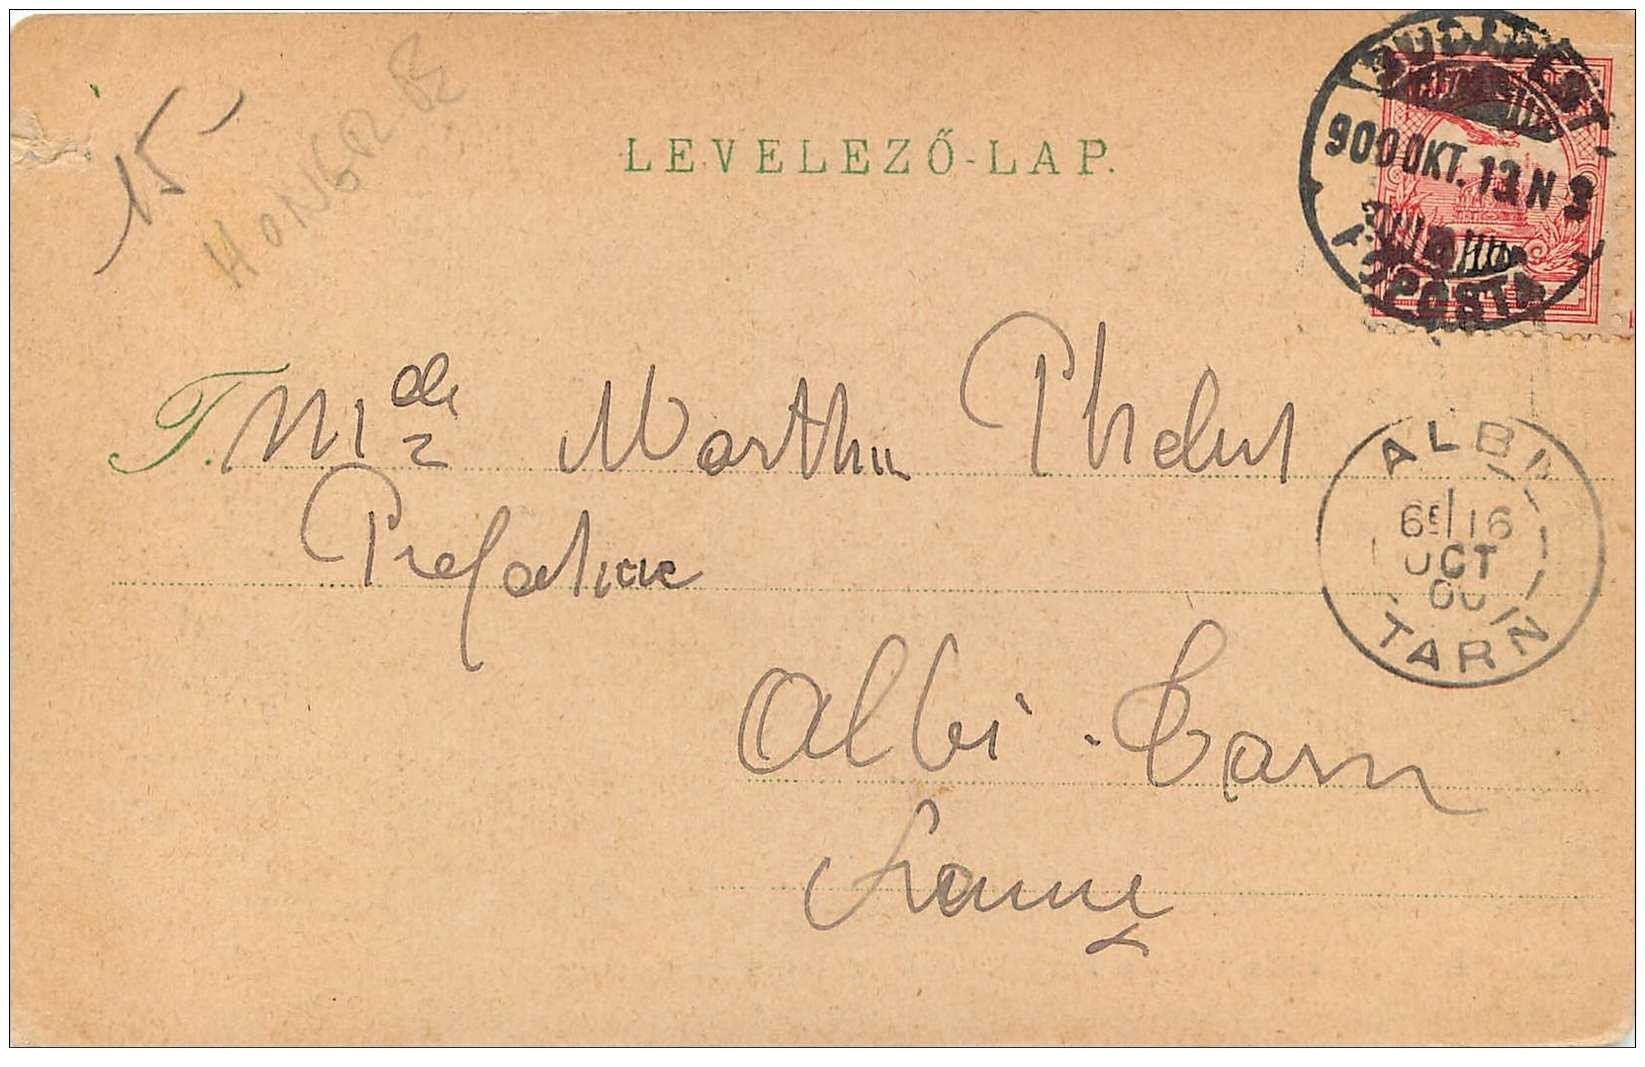 15-
HONGRIE
LEVELEZŐ-LAP.
BUDAPEST
900 OKT. 13 N 3
FŐPOSTA
T. Mlle Marthe Phelut
Préfecture
Albi - Tarn
France
ALBI
6E/16
OCT
00
TARN